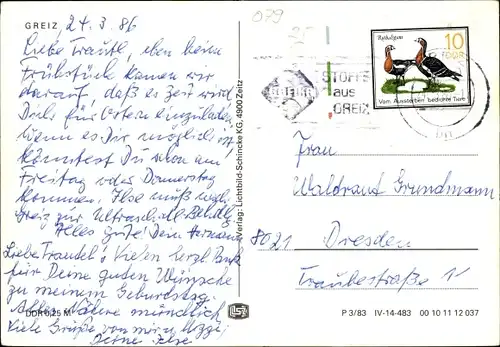 GREIZ
24.3.86
Liebe Trautl, eben beim
Frühstück kamen wir
darauf, daß es Zeit wird
Dich für Ostern einzuladen
Wenn es Dir möglich ist
könntest Du schon am
Freitag oder Donnerstag
kommen, Ilse muß
Greiz zur Ultraschall
Alles Gute! Dein Hermann
Liebe Trautel! Vielen herzl. Dank
für Deine guten Wünsche
zu meinem Geburtstag.
Alles mündlich
Viele Grüße von
Deine Ilse
DDR 0,25 M
Verlag: Lichtbild-Schincke KG, 4900 Zeitz
079
STOFFE
aus
GREIZ
Rothalsgans
10
DDR
Vom Aussterben bedrohte Tiere
Frau
Waldraut Grundmann
8021 Dresden
Traubestraße 1
P 3/83 IV-14-483 00 10 11 12 037